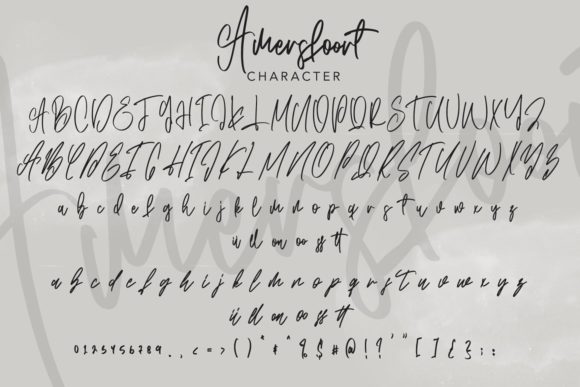 Amersfoort
CHARACTER
ABCDEFGHIJKLMNOPQRSTUVWXYZ
ABCDEFGHIJKLMNOPQRSTUVWXYZ
a b c d e f g h i j k l m n o p q r s t u v w x y z
ll on oo ss tt
a b c d e f g h i j k l m n o p q r s t u v w x y z
ll on oo ss tt
0123456789 . , < = > ( ) " * ^ % $ # @ ! ? ' " [ ] { } ; :